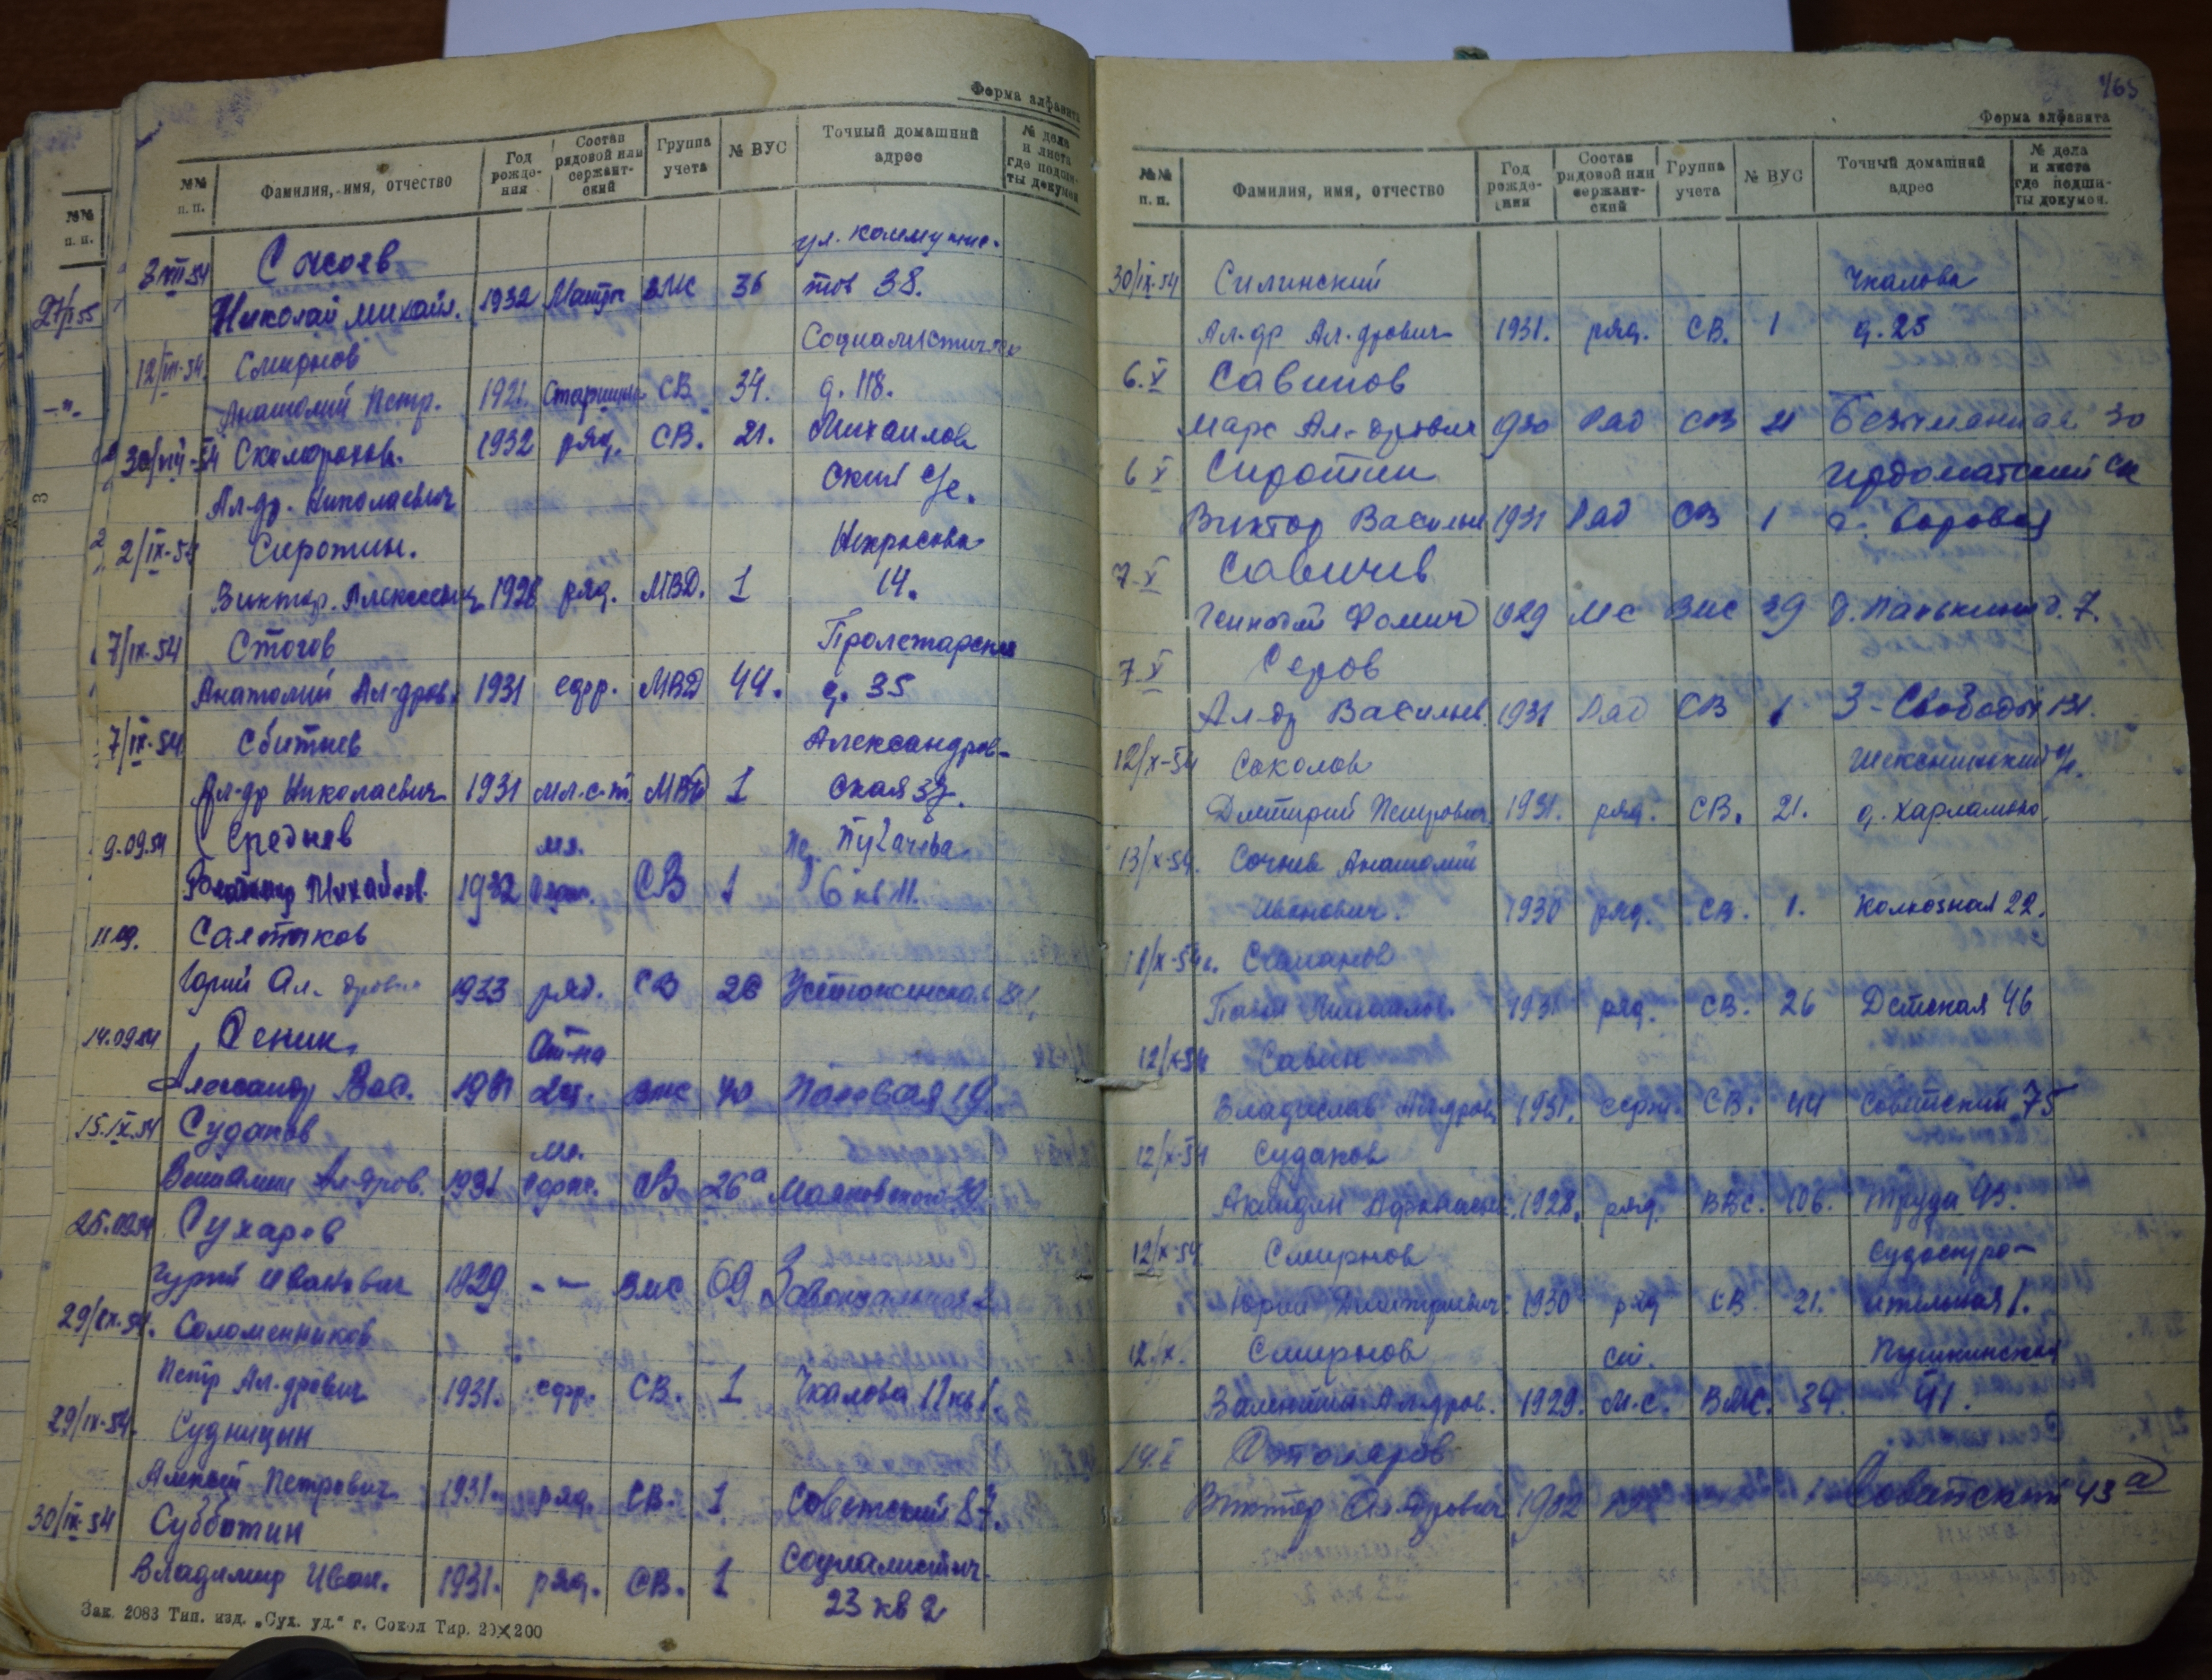 Форма алфавита
№№ п. п. Фамилия, имя, отчество Год рожде- ния Состав рядовой или сержант- ский Группа учета № ВУС Точный домашний адрес № дела и листа где подши- ты докумен
ул. Коммунис-
Николай Михайл. 1932 ВМС 36 тов 38.
12/VIII-54. Смирнов Социалистическ
Анатолий Петр. 1921 Старшина СВ 34. д. 118.
1932 ряд. СВ. 21. Михайлов
Ал-др. Николаевич ский с/с.
2/IX-54 Сиротин. Некрасова
Виктор. Алексеевич 1928 ряд. МВД. 1 14.
7/IX-54 Стогов Пролетарская
Анатолий Ал-дров. 1931 МВД 44. д. 35
7/IX-54 Сбитнев Александров-
Ал-др Николаевич 1931 мл. с-т МВД 1 ская 37.
9.09.54 Среднев мл. Пугачева
Михайлов. 1932 СВ 1 6 кв 11.
11.09. Салтыков
Юрий Ал-дрович 1933 ряд. СВ 26 Устюженская
14.09.54 Сеник
Александр Вас. ВМС 40 Паровая 19
15.IX.54 Судаков мл.
Вениамин Ал-дров. 1931 серж. СВ 26а Маяковского 20
25.09.54 Сухарев
Гурий Иванович 1929 -"- ВМС 69 Завокзальная 2
29/IX-54. Соломенников
Петр Ал-дрович 1931. СВ. 1 Чкалова 11 кв 1.
29/IX-54. Судницын
Алексей Петрович 1931. ряд. СВ. 1 Советский 87.
30/IX-54 Субботин Социалистич.
Владимир Иван. 1931. ряд. СВ. 1 23 кв 2
Зак. 2083 Тип. изд. „Сух. уд.“ г. Сокол Тир. 20×200
Форма алфавита
№№ п. п. Фамилия, имя, отчество Год рожде- ния Состав рядовой или сержант- ский Группа учета № ВУС Точный домашний адрес № дела и листа где подши- ты докумен.
30/IX-54 Силинский Чкалова
Ал-др Ал-дрович 1931. ряд. СВ. 1 д. 25
6.X Савинов
Марс Ал-дрович 930 Ряд СВ 21 30
6 X Сиротин Ирдоматский с/с
Виктор Васильев 1931 Ряд СВ 1 д. Боровая
7.X Савичев
Геннадий Фомич 1929 МС ВМС 29 д. Панькино д. 7.
7.X Серов
Ал-др Васильев. 1931 Ряд СВ 1 3-Свободы 131.
12/X-54 Соколов Шекснинский
Дмитрий Петрович 1931. ряд. СВ. 21. д. Харламово.
13/X-54. Сочнев Анатолий
Иванович. 1930 ряд. СВ. 1. Колхозная 22.
Степанов
1931 ряд. СВ. 26 Детская 46
12/X-54 Савин
Владислав Ал-дров. 1931. серж. СВ. 44 Советский 75
12/X-54 Судаков
1928. ряд. ВВС. 106. Труда 93.
12/X-54 Смирнов Судострo-
Юрий Дмитриевич. 1930 ряд СВ. 21. ительная 1.
12.X. Смирнов ст. Пушкинская
Валентин Ал-дров. 1929. М.С. ВМС. 34. 41.
14.X Столяров
Виктор Ал-дрович 1932 Советский 43а